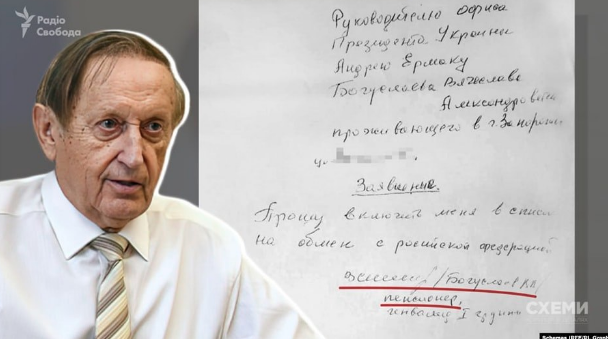 Радіо
Свобода
Руководителю офиса
Президента Украины
Андрею Ермаку
Богуслаева Вячеслава
Александровича
проживающего в г. Запорож
Заявление.
Прошу включить меня в список
на обмен с российской федерацией
/Богуслаев
пенсионер,
I группы
СХЕМИ
Schemes (RFE/RL Graphics)